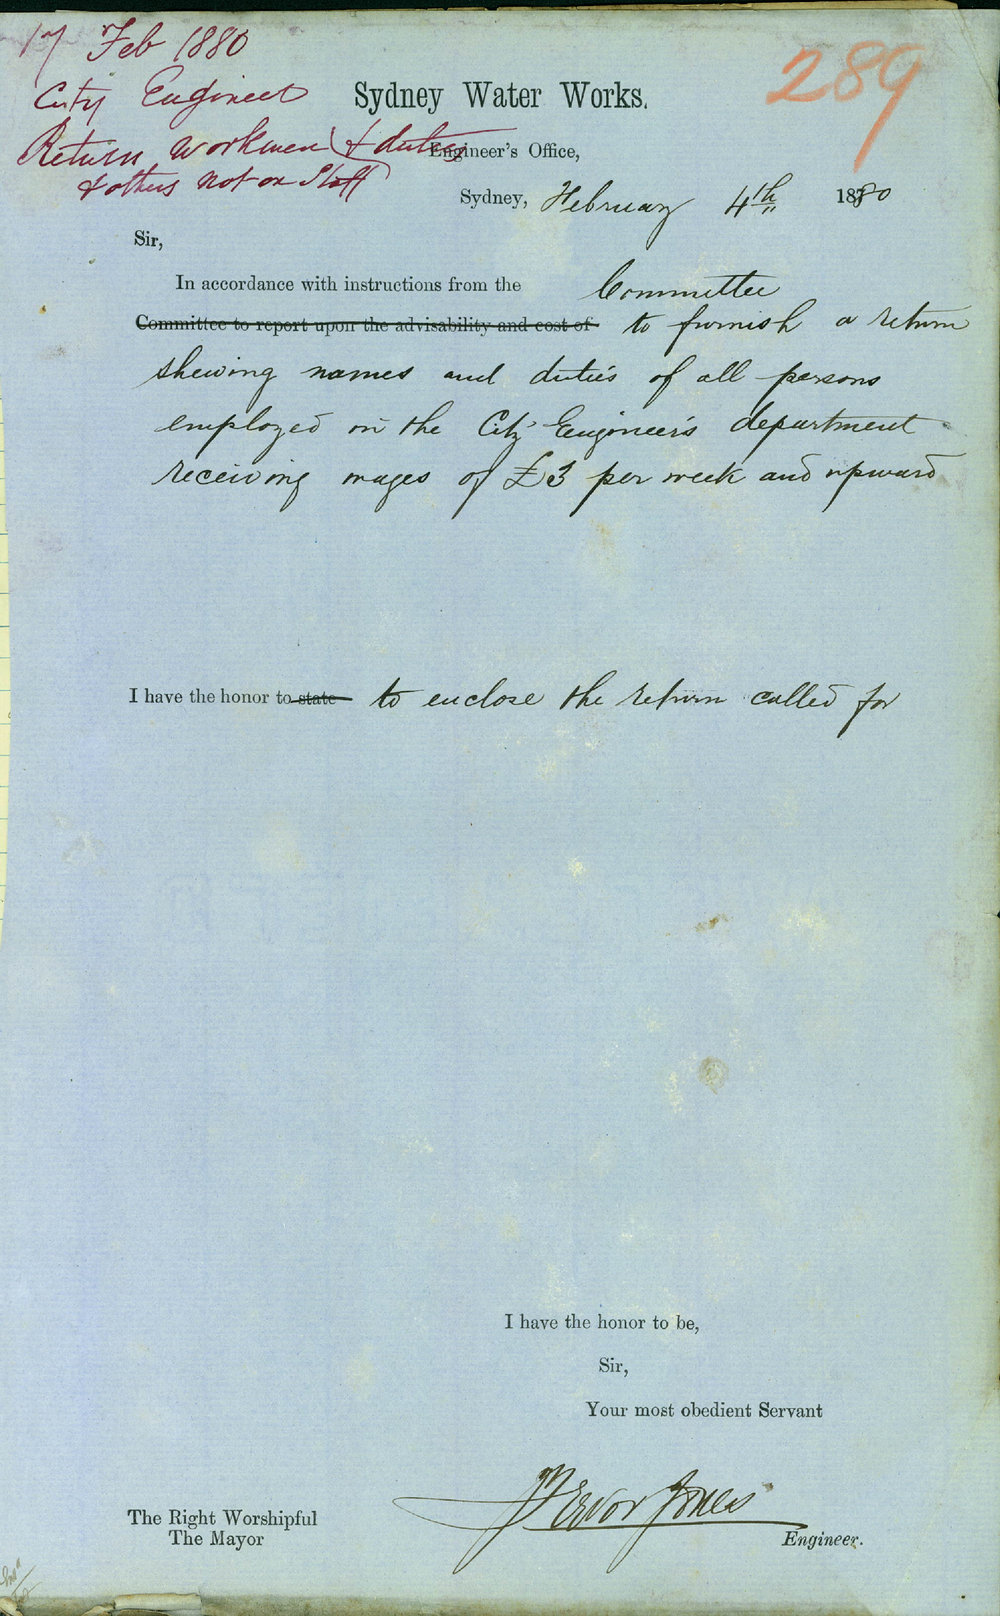 17 Feb 1880
City Engineer
Return Workmen & duties
& others not on Staff
289
Sydney Water Works.
Engineer's Office,
Sydney, February 4th 1880
Sir,
In accordance with instructions from the Committee
Committee to report upon the advisability and cost of to furnish a return
shewing names and duties of all persons
employed in the City Engineer's department
receiving wages of £3 per week and upward
I have the honor to state to enclose the return called for
I have the honor to be,
Sir,
Your most obedient Servant
Trevor Jones
Engineer.
The Right Worshipful
The Mayor